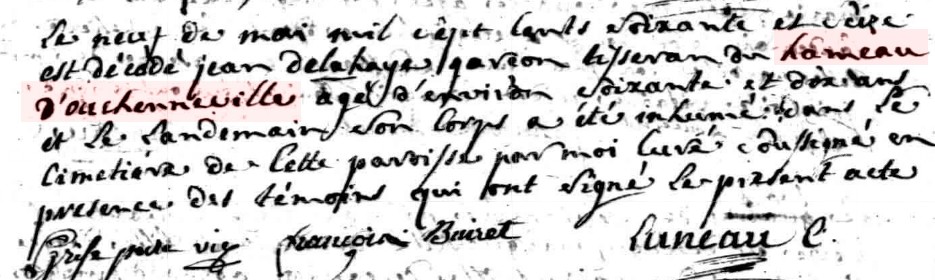 Le neuf de mai mil cept cents soixante et seize
est décédé jean delahaye garcon tisseran du hameau
d'ouchenneville agé d'environ soixante et dix ans
et le landemain son corps a été inhumé dans le
cimetiére de cette paroisse par moi curé soussigné en
presence des témoins qui ont signé le present acte
françois Buiret Luneau C.